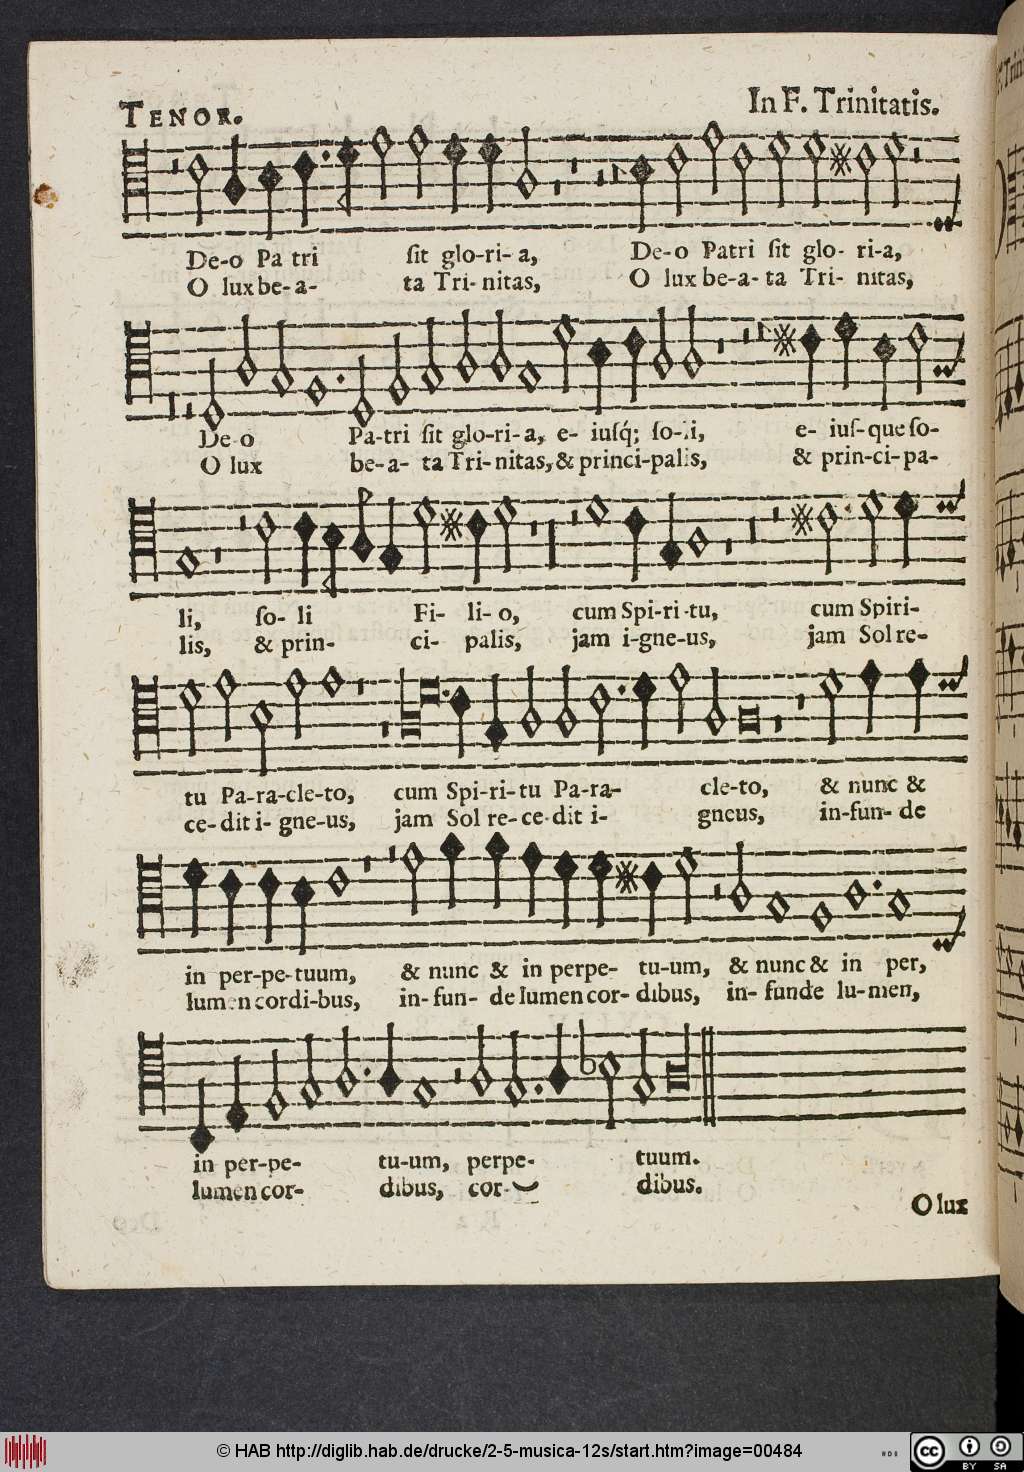 TENOR.
In F. Trinitatis.
De-o Pa tri sit glo-ri-a, De-o Patri sit glo- ri-a,
O lux be-a- ta Tri-nitas, O lux be-a-ta Tri- nitas,
De-o Pa-tri sit glo-ri-a, e- iusq́; so-li, e- ius-que so-
O lux be-a- ta Tri-nitas, & princi-palis, & prin-ci-pa-
li, so- li Fi- li-o, cum Spi-ri-tu, cum Spiri-
lis, & prin- ci- palis, jam i-gne-us, jam Sol re-
tu Pa-ra-cle-to, cum Spi-ri-tu Pa-ra- cle-to, & nunc &
ce-dit i-gne-us, jam Sol re-ce-dit i- gneus, in-fun-de
in per-pe-tuum, & nunc & in perpe- tu-um, & nunc & in per,
lumen cordi-bus, in-fun- de lumen cor- dibus, in-funde lu-men,
in per-pe- tu-um, perpe- tuum.
lumen cor- dibus, cor- dibus.
O lux
© HAB http://diglib.hab.de/drucke/2-5-musica-12s/start.htm?image=00484
cc BY SA